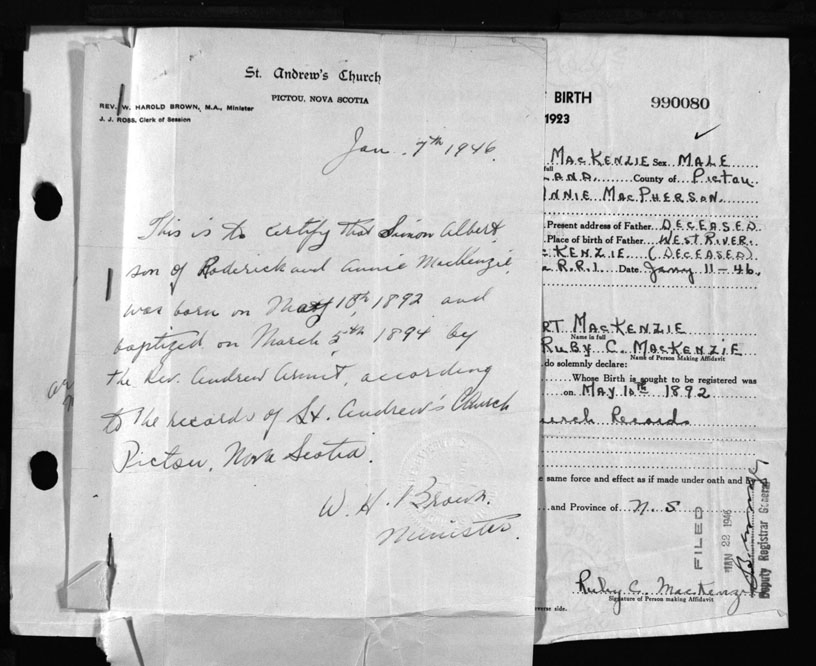 St. Andrew's Church
PICTOU, NOVA SCOTIA
REV. W. HAROLD BROWN, M.A., Minister
J. J. ROSS, Clerk of Session
Jan. 7th 1946.
This is to certify that Simon Albert
son of Roderick and Annie MacKenzie,
was born on May 10th, 1892 and
baptized on March 5th 1894 by
the Rev. Andrew Armit, according
to the records of St. Andrew's Church
Pictou, Nova Scotia.
W. H. Brown.
Minister.
BIRTH
1923
990080
MACKENZIE Sex MALE
full
County of Pictou
NNIE MACPHERSON.
Present address of Father DECEASED
Place of birth of Father WEST RIVER.
KENZIE (DECEASED)
R.R.1. Date. Jany 11-46.
RT MACKENZIE
Name in full
RUBY C. MACKENZIE
Name of Person Making Affidavit
do solemnly declare:
Whose Birth is sought to be registered was
on MAY 10th 1892
urch Records
e same force and effect as if made under oath and by
and Province of N.S
FILED
JAN 22 1946
Deputy Registrar General
Ruby C. MacKenzie
Signature of Person making Affidavit
everse side.